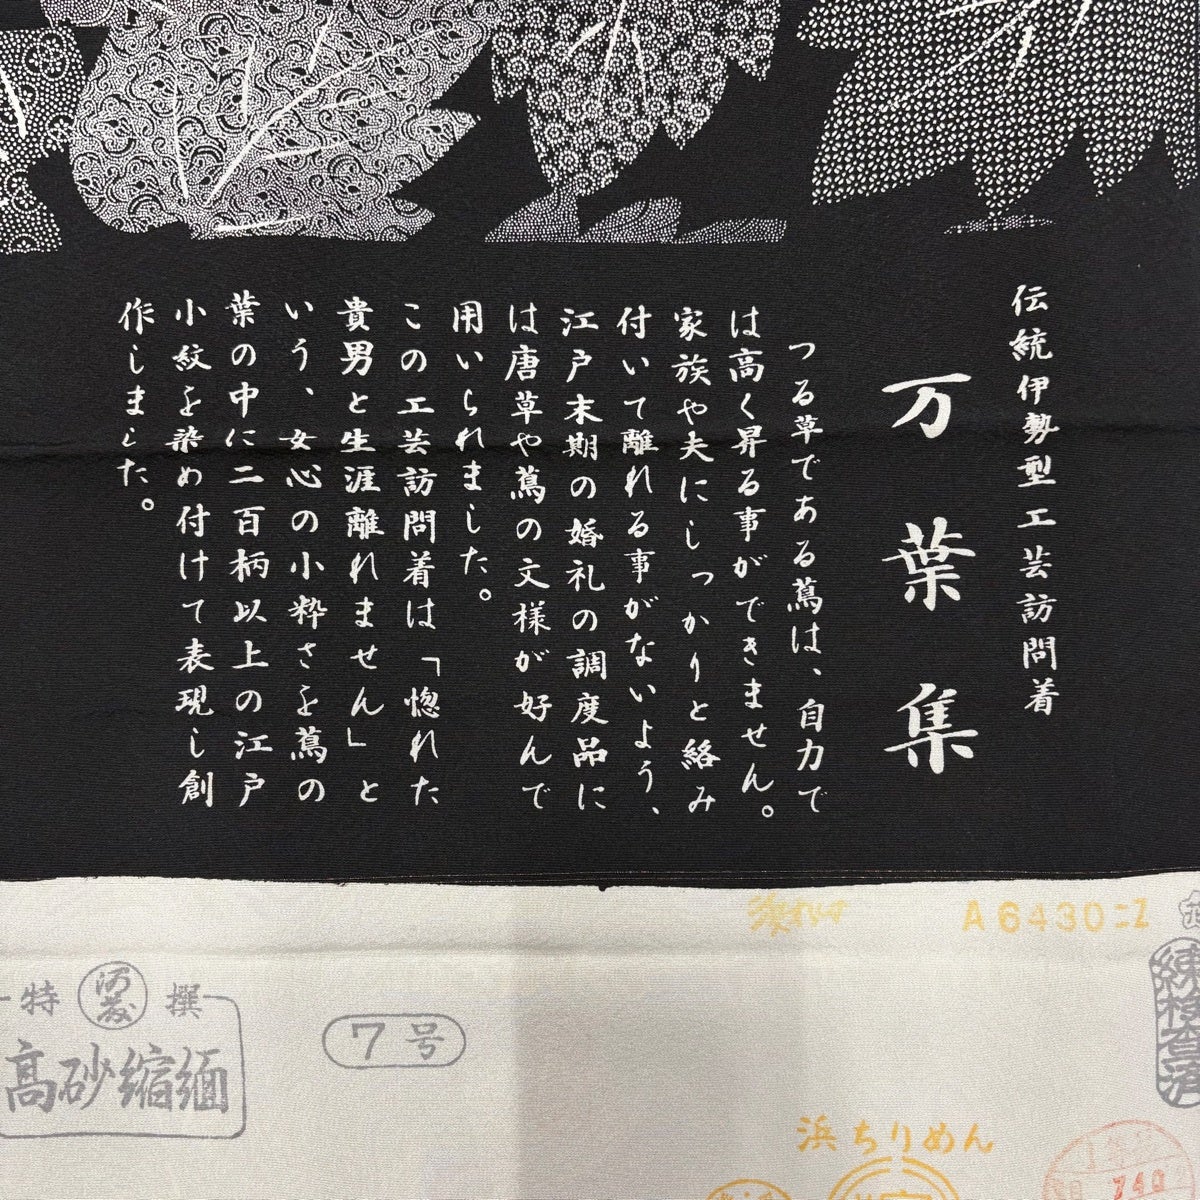 伝統伊勢型工芸訪問着
万葉集
つる草である蔦は、自力で
は高く昇る事ができません。
家族や夫にしっかりと絡み
付いて離れる事がないよう、
江戸末期の婚礼の調度品に
は唐草や蔦の文様が好んで
用いられました。
この工芸訪問着は「惚れた
貴男と生涯離れません」と
いう、女心の小粋さを蔦の
葉の中に二百柄以上の江戸
小紋を染め付けて表現し創
作しました。
A6430ニZ
特撰
高砂縮緬
7号
練検査済
浜ちりめん
740